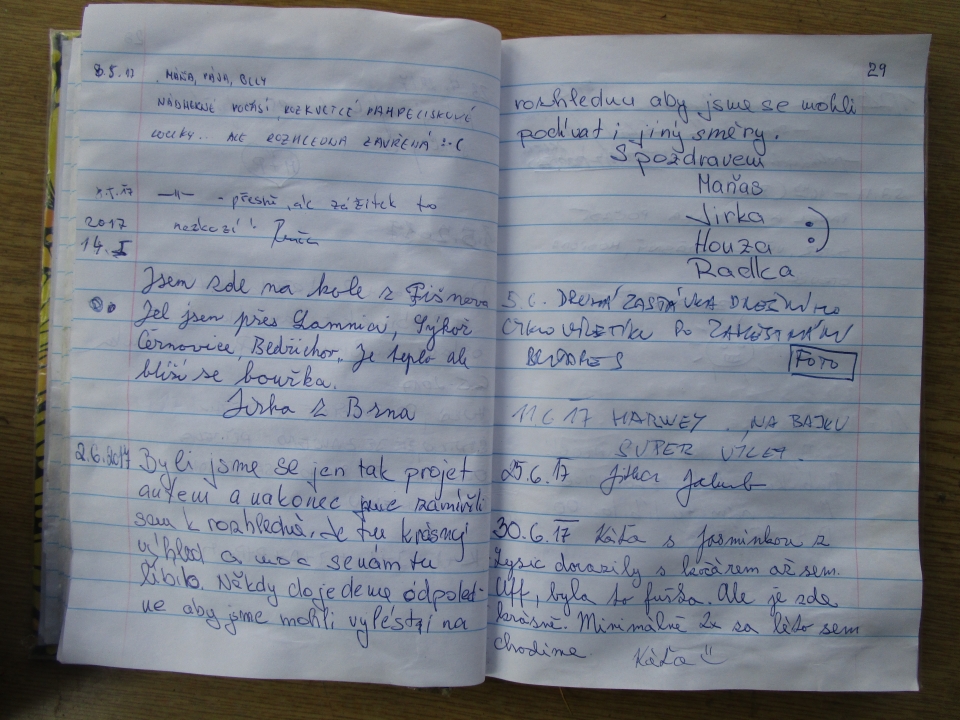 8.5.17 MÁŇA, PÁJA, BILLY
NÁDHERNÉ POČASÍ, ROZKVETLÉ PAMPELIŠKOVÉ
LOUKY.. ALE ROZHLEDNA ZAVŘENÁ :-(
—"— - přesně, ale zážitek to
nezkazí!
2017
14. I
Jsem zde na kole z Tišnova
Jel jsem přes Lomnici, Sýkoř
Černovice, Bedřichov. Je teplo ale
blíží se bouřka.
Jirka z Brna
2.6.2017 Byli jsme se jen tak projet
autem a nakonec jsme zamířili
sem k rozhledně, Je tu krásný
výhled a moc se nám tu
líbilo. Někdy dojedeme odpoled-
ne aby jsme mohli vylést i na
29
rozhlednu aby jsme se mohli
podívat i jiný směry.
S pozdravem
Maňas
Jirka :)
Houza
Radka
5.6. DRUHÁ ZASTÁVKA DNEŠNÍHO
PO
FOTO
11.6.17 HARWEY. NA BAJKU
SUPER VÝLET.
25.6.17 Jitka Jakub
30.6.17 Káťa s Jasmínkou z
Lysic dorazily s kočárem až sem.
Uff, byla to fuška. Ale je zde
krásně. Minimálně 2x za léto sem
chodíme. Káťa